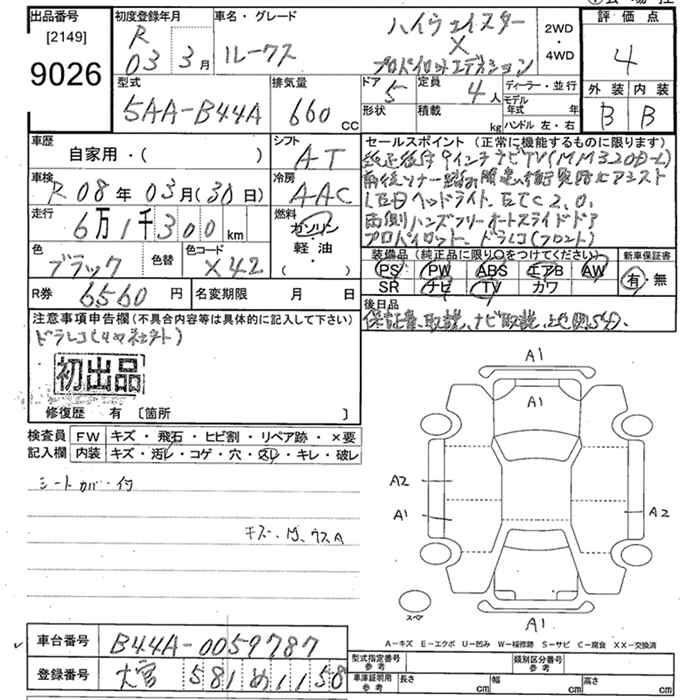 出品番号
[2149]
9026
初度登録年月
R
03 3月
車名・グレード
ルークス
ハイウェイスター
X
プロパイロットエディション
2WD
・
4WD
評価点
4
外装 内装
B B
型式
5AA-B44A
排気量
660 cc
ドア
5
形状
定員
4人
積載
kg
ディーラー・並行
モデル
年式 年
ハンドル 左・右
車歴
自家用・( )
シフト
AT
車検
R08年03月(30日)
冷房
AAC
走行
6万1千300km
燃料
ガソリン
軽・油
( )
色
ブラック
色替
色コード
X42
R券
6560円
名変期限 月 日
セールスポイント(正常に機能するものに限ります)
純正後付9インチナビTV(MM320D-L)
LEDヘッドライト.ETC2.0.
両側ハンズフリーオートスライドドア
プロパイロット、ドラレコ(フロント)
装備品(純正品に限り○をつけてください)
PS PW ABS エアB AW
SR ナビ TV カワ
新車保証書
有・無
後日品
保証書、取説、ナビ取説、
注意事項申告欄(不具合内容等は具体的に記入して下さい)
初出品
修復歴 有 〔箇所 〕
検査員
記入欄
FW キズ・飛石・ヒビ割・リペア跡・×要
内装 キズ・汚レ・コゲ・穴・スレ・キレ・破レ
シートカバー付
A1
A1
A2
A1
A2
スペア
A1
A-キズ E-エクボ U-凹み W-板修跡 S-サビ C-腐食 XX-交換済
車台番号
B44A-0059787
登録番号
大宮 581 め 1158
型式指定番号
参考
類別区分番号
参考
車庫証明用
参考
長さ cm
幅 cm
高さ cm